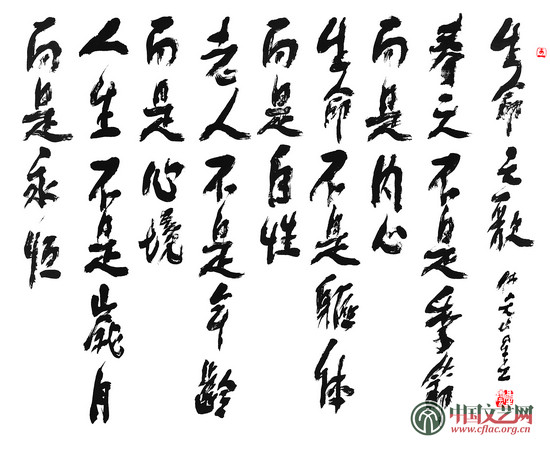 生命之歌 佛光山星云
春天不是季節
而是內心
生命不是軀体
而是自性
老人不是年齡
而是心境
人生不是歲月
而是永恒
中国文艺网
www.cflac.org.cn